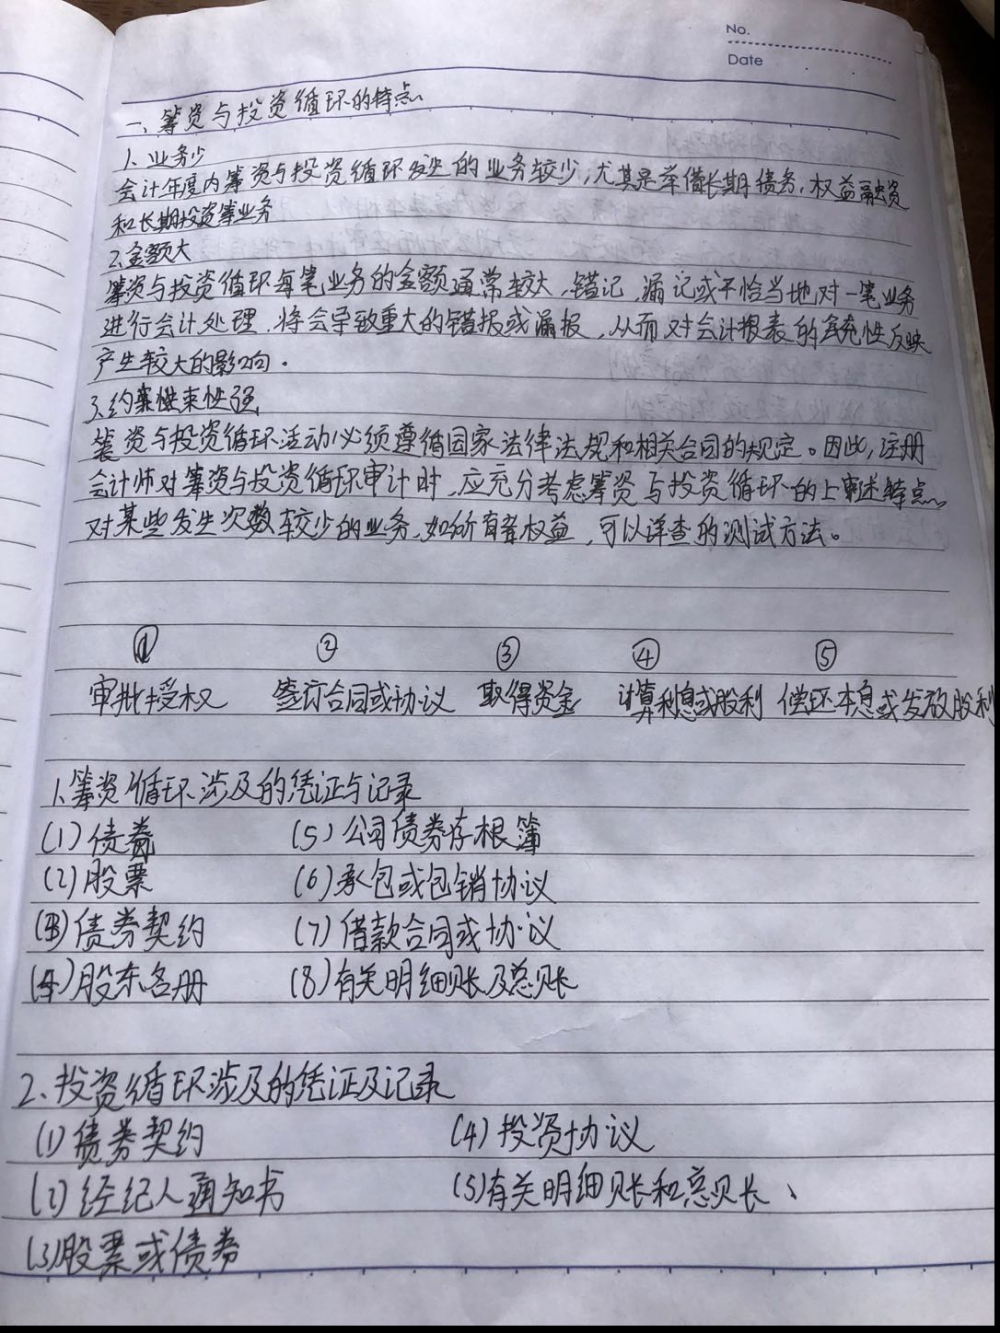 No.
Date
一、筹资与投资循环的特点
1、业务少
会计年度内筹资与投资循环发生的业务较少,尤其是举借长期债务,权益融资
和长期投资等业务
2、金额大
筹资与投资循环每笔业务的金额通常较大,错记,漏记或不恰当地对一笔业务
进行会计处理,将会导致重大的错报或漏报,从而对会计报表的公允性反映
产生较大的影响。
3、约束性强
筹资与投资循环活动必须遵循国家法律法规和相关合同的规定。因此,注册
会计师对筹资与投资循环审计时,应充分考虑筹资与投资循环的上述特点、
对某些发生次数较少的业务,如所有者权益,可以详查的测试方法。
① ② ③ ④ ⑤
审批授权 签订合同或协议 取得资金 计算利息或股利 偿还本息或发放股利
1、筹资循环涉及的凭证与记录
(1)债券 (5)公司债券存根簿
(2)股票 (6)承包或包销协议
(3)债券契约 (7)借款合同或协议
(4)股东名册 (8)有关明细账及总账
2、投资循环涉及的凭证及记录
(1)债券契约 (4)投资协议
(2)经纪人通知书 (5)有关明细账和总账、
(3)股票或债券